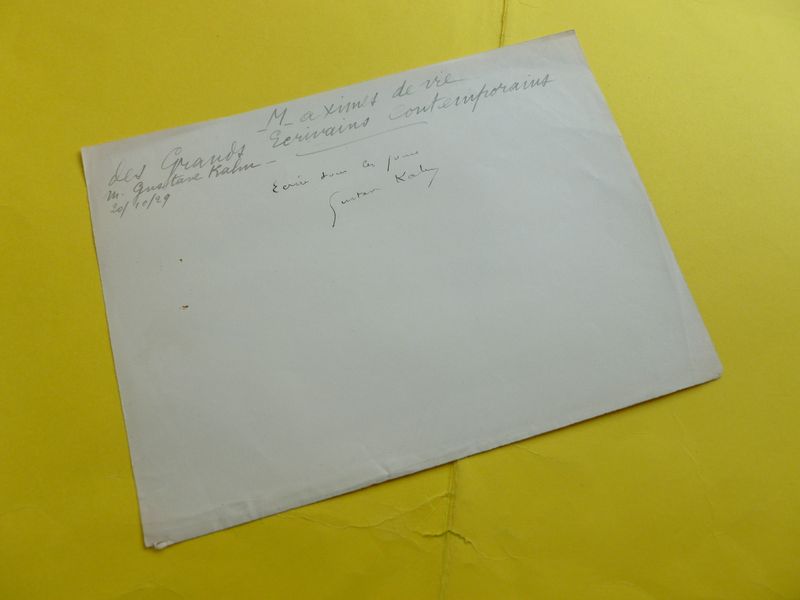 Maximes de vie
des Grands Ecrivains contemporains
M. Gustave Kahn -
20/10/29
Ecrire tous les jours
Gustave Kahn